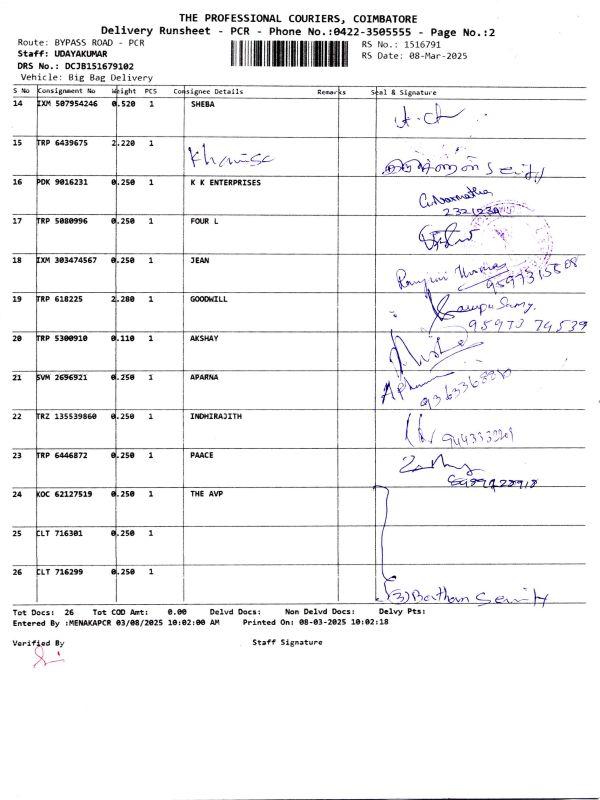 THE PROFESSIONAL COURIERS, COIMBATORE
Delivery Runsheet - PCR - Phone No.:0422-3505555 - Page No.:2
Route: BYPASS ROAD - PCR
RS No.: 1516791
Staff: UDAYAKUMAR
RS Date: 08-Mar-2025
DRS No.: DCJB151679102
Vehicle: Big Bag Delivery
S No Consignment No Weight PCS Consignee Details Remarks Seal & Signature
14 IXM 507954246 0.520 1 SHEBA
15 TRP 6439675 2.220 1
16 PDK 9016231 0.250 1 K K ENTERPRISES
17 TRP 5080996 0.250 1 FOUR L
18 IXM 303474567 0.250 1 JEAN
19 TRP 618225 2.280 1 GOODWILL
95973 74539
20 TRP 5300910 0.110 1 AKSHAY
21 SVM 2696921 0.250 1 APARNA
22 TRZ 135539860 0.250 1 INDHIRAJITH
23 TRP 6446872 0.250 1 PAACE
24 KOC 62127519 0.250 1 THE AVP
25 CLT 716301 0.250 1
26 CLT 716299 0.250 1
Tot Docs: 26 Tot COD Amt: 0.00 Delvd Docs: Non Delvd Docs: Delvy Pts:
Entered By :MENAKAPCR 03/08/2025 10:02:00 AM Printed On: 08-03-2025 10:02:18
Verified By Staff Signature